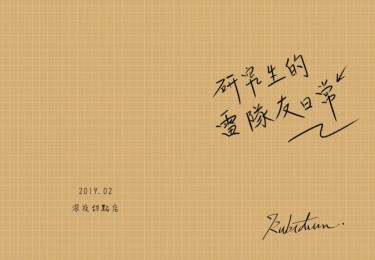 研究生的
雷隊友日常
2019.02
深夜甜點店
Rubidium.